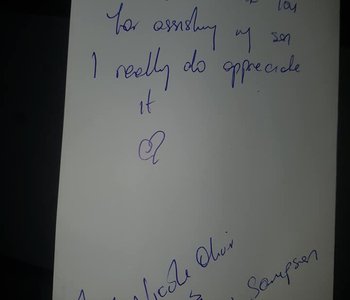 for assisting my son
I really do appreciate
it
Nicole
Sampson